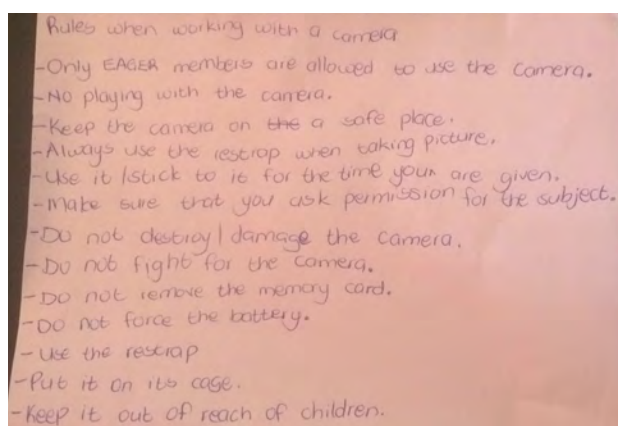 Rules when working with a camera
-Only EAGER members are allowed to use the camera.
-No playing with the camera.
-Keep the camera on the a safe place.
-Always use the restrap when taking picture.
-Use it /stick to it for the time your are given.
-Make sure that you ask permission for the subject.
-Do not destroy / damage the camera.
-Do not fight for the camera.
-Do not remove the memory card.
-Do not force the battery.
-Use the restrap
-Put it on its case.
-Keep it out of reach of children.